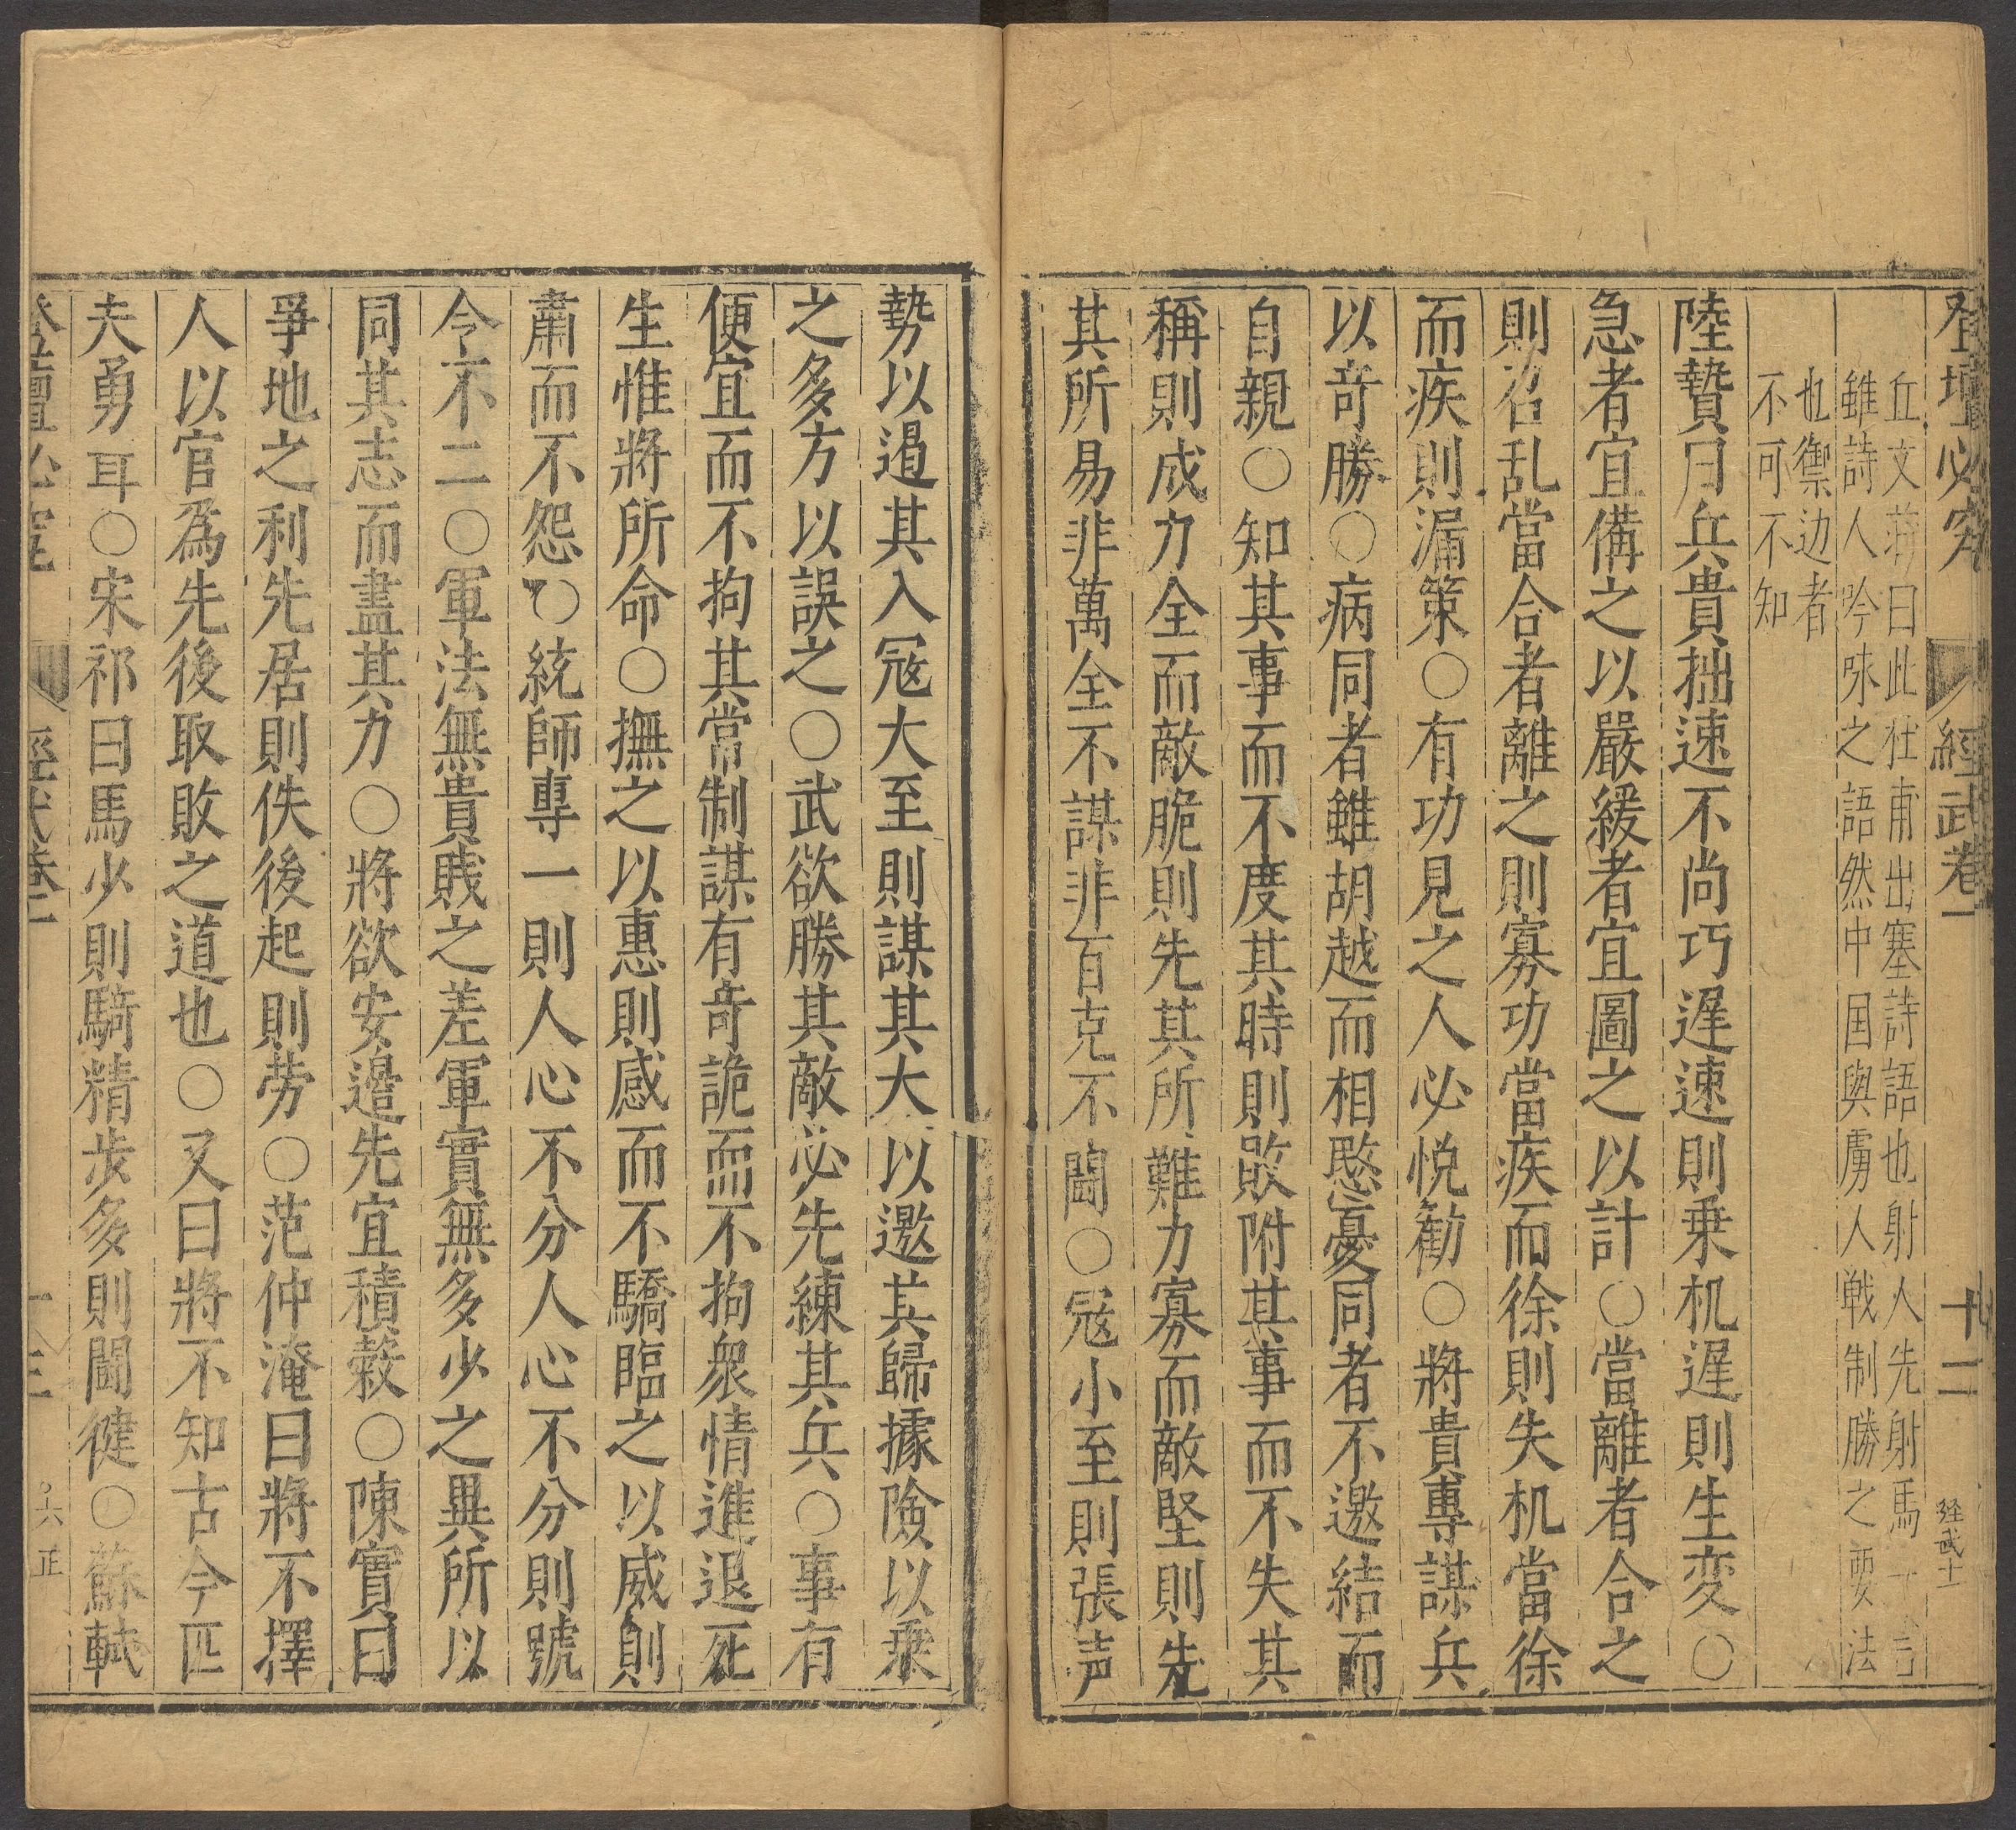 登壇必究
經武卷一
十二
経武十二
丘文莊曰此杜甫出塞詩語也射人先射馬一言
雖詩人吟咏之語然中国與虜人戦制勝之要法
也禦边者
不可不知
陸贄曰兵貴拙速不尚巧遅速則乗机遅則生変○
急者宜備之以嚴緩者宜圖之以計○當離者合之
則召乱當合者離之則寡功當疾而徐則失机當徐
而疾則漏策○有功見之人必悦勸○將貴專謀兵
以竒勝○病同者雖胡越而相愍憂同者不邀結而
自親○知其事而不度其時則敗附其事而不失其
稱則成力全而敵脆則先其所難力寡而敵堅則先
其所易非萬全不謀非百克不鬪○冦小至則張声
勢以遏其入冦大至則謀其大以邀其歸據険以乗
之多方以誤之○武欲勝其敵必先練其兵○事有
便宜而不拘其常制謀有竒詭而不拘衆情進退死
生惟將所命○撫之以惠則感而不驕臨之以威則
肅而不怨○統師專一則人心不分人心不分則號
令不二○軍法無貴賎之差軍實無多少之異所以
同其志而盡其力○將欲安邉先宜積穀○陳實曰
爭地之利先居則佚後起則劳○范仲淹曰將不擇
人以官爲先後取敗之道也○又曰將不知古今匹
夫勇耳○宋祁曰馬少則騎精步多則鬪健○蘇軾
登壇必究
經武卷一
十三